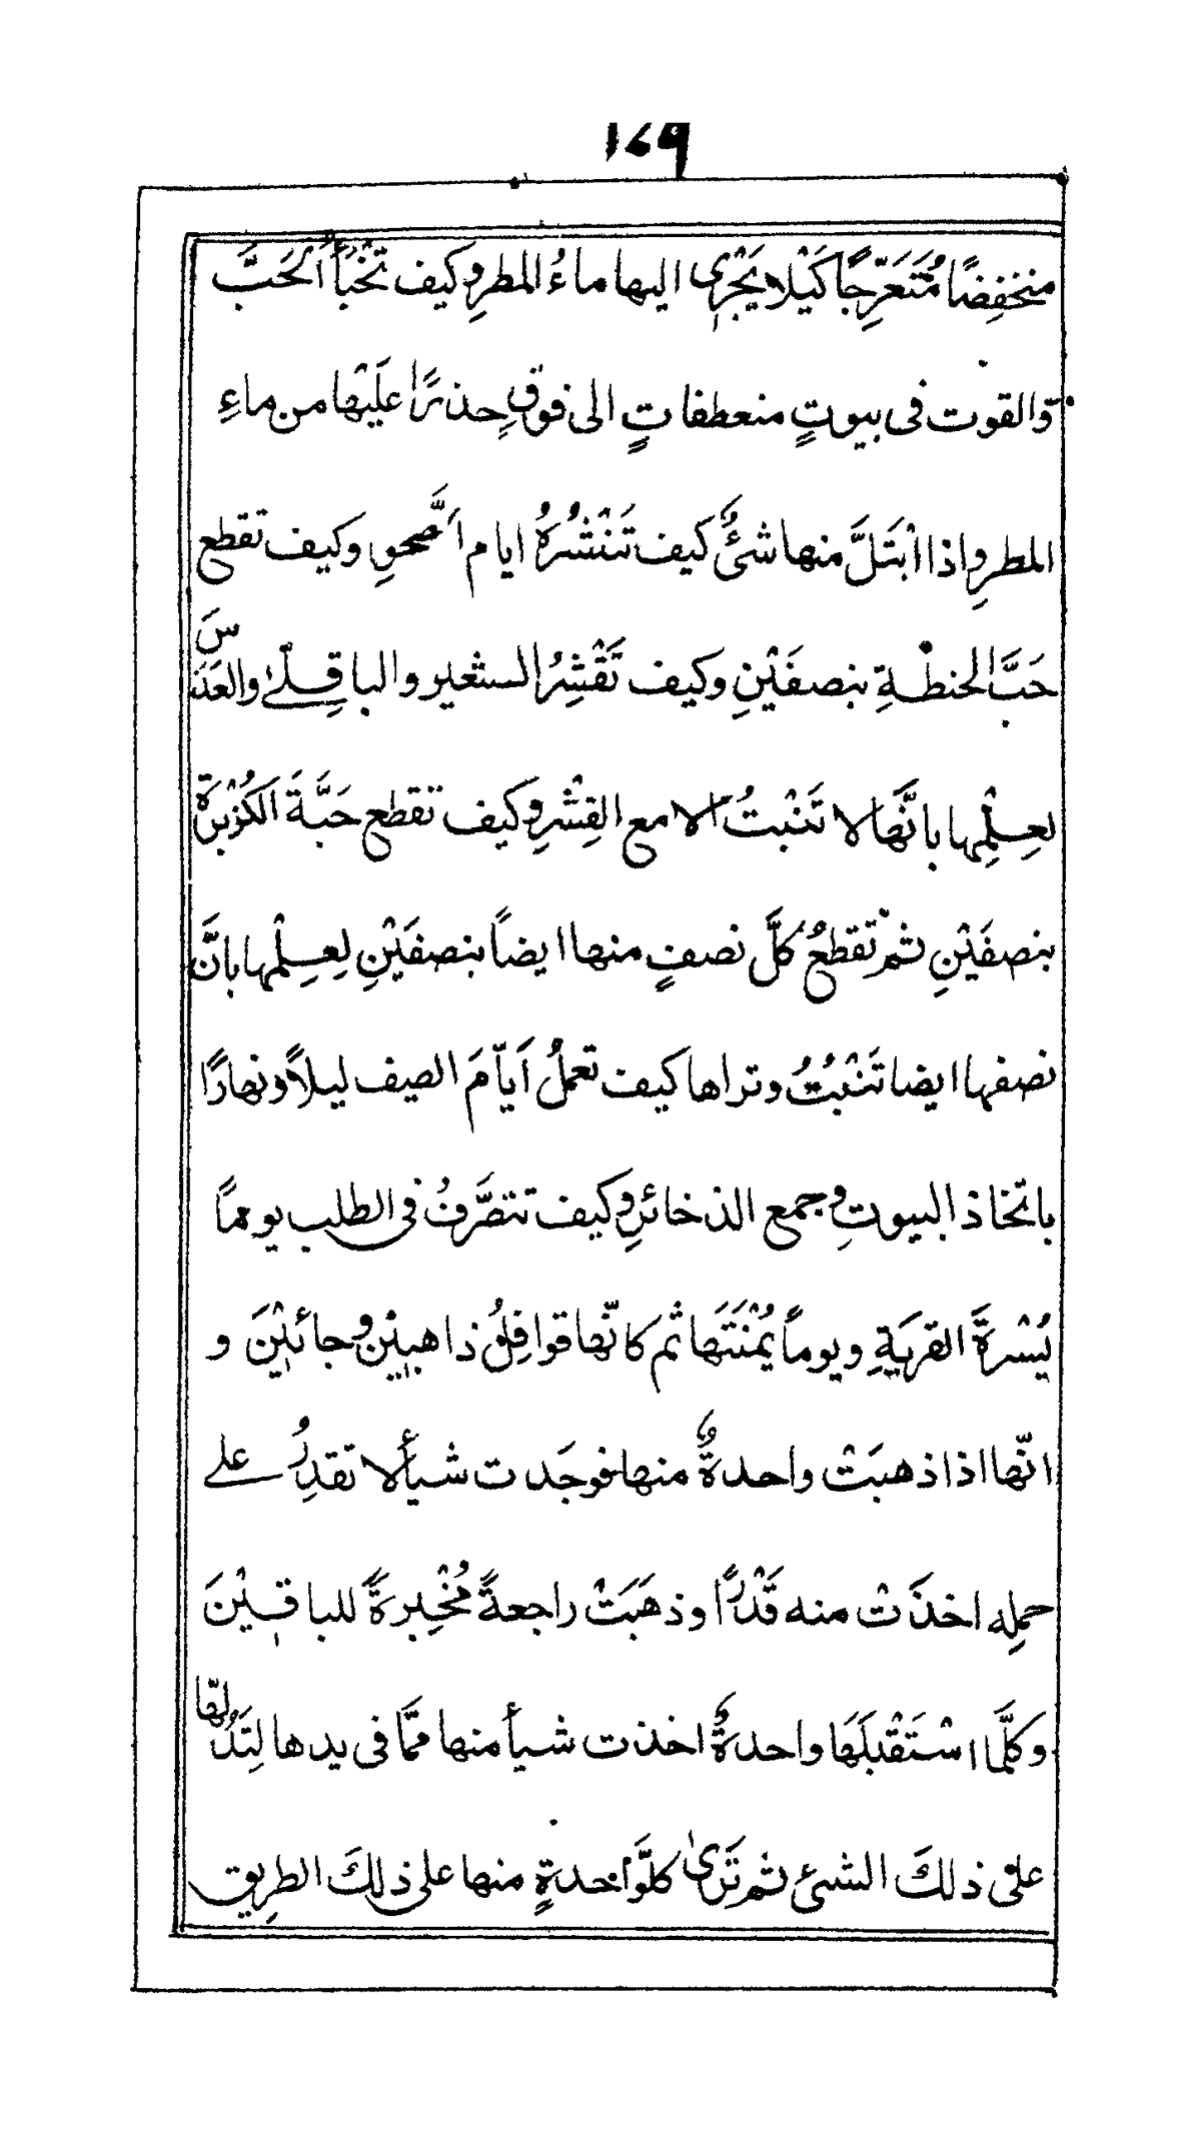 ١٤٩
منخفِضًا مُتَعَرِّجًا كَيْلا يَجْرِى اليها ماءُ المطرِ وكيف تَخْبَأُ الحَبَّ
والقوت فى بيوتٍ منعطفاتٍ الى فوقٍ حذرًا عليْها من ماءِ
المطرِ واذا ابْتَلَّ منها شئٌ كيف تَنْشُرُهُ ايام الصَّحوِ وكيف تقطع
حَبَّ الحنطةِ بنصفَيْنِ وكيف تَقْشِرُ الشعير والباقِلّےٰ والعَدَسَ
لعِلْمِها بانَّها لا تَنْبتُ الا مع القِشْرِ وكيف تقطع حَبَّةَ الكُزْبَرَة
بنصفَيْنِ ثم تقطعُ كلَّ نصفٍ منها ايضاً بنصفَيْنِ لِعِلْمِها بانَّ
نصفها ايضا تَنْبُتُ وتراها كيف تعملُ اَيّامَ الصيف ليلاً ونهارًا
باتخاذ البيوتِ وجمع الذخائرِ وكيف تتصَّرفُ فى الطلب يوماً
يَسْرةَ القريَةِ ويوماً يُمْنَتَها ثم كانّها قوافِلُ ذاهبِيْن وجائيْنَ و
انّها اذا ذهبَتْ واحدةٌ منها فوجَدت شيأً لا تقدِرُ علے
حمِله اخذَتْ منه قَدْرًا وذهَبَتْ راجعةً مُخْبِرةً للباقيْنَ
وكلَّما اسْتَقْبلَها واحدةٌ اخذت شيأً منها ممَّا فى يدها لِتَدُلَّها
علىٰ ذلكَ الشئ ثم تَرَىٰ كلَّ واحدةٍ منها على ذلكَ الطرِيق